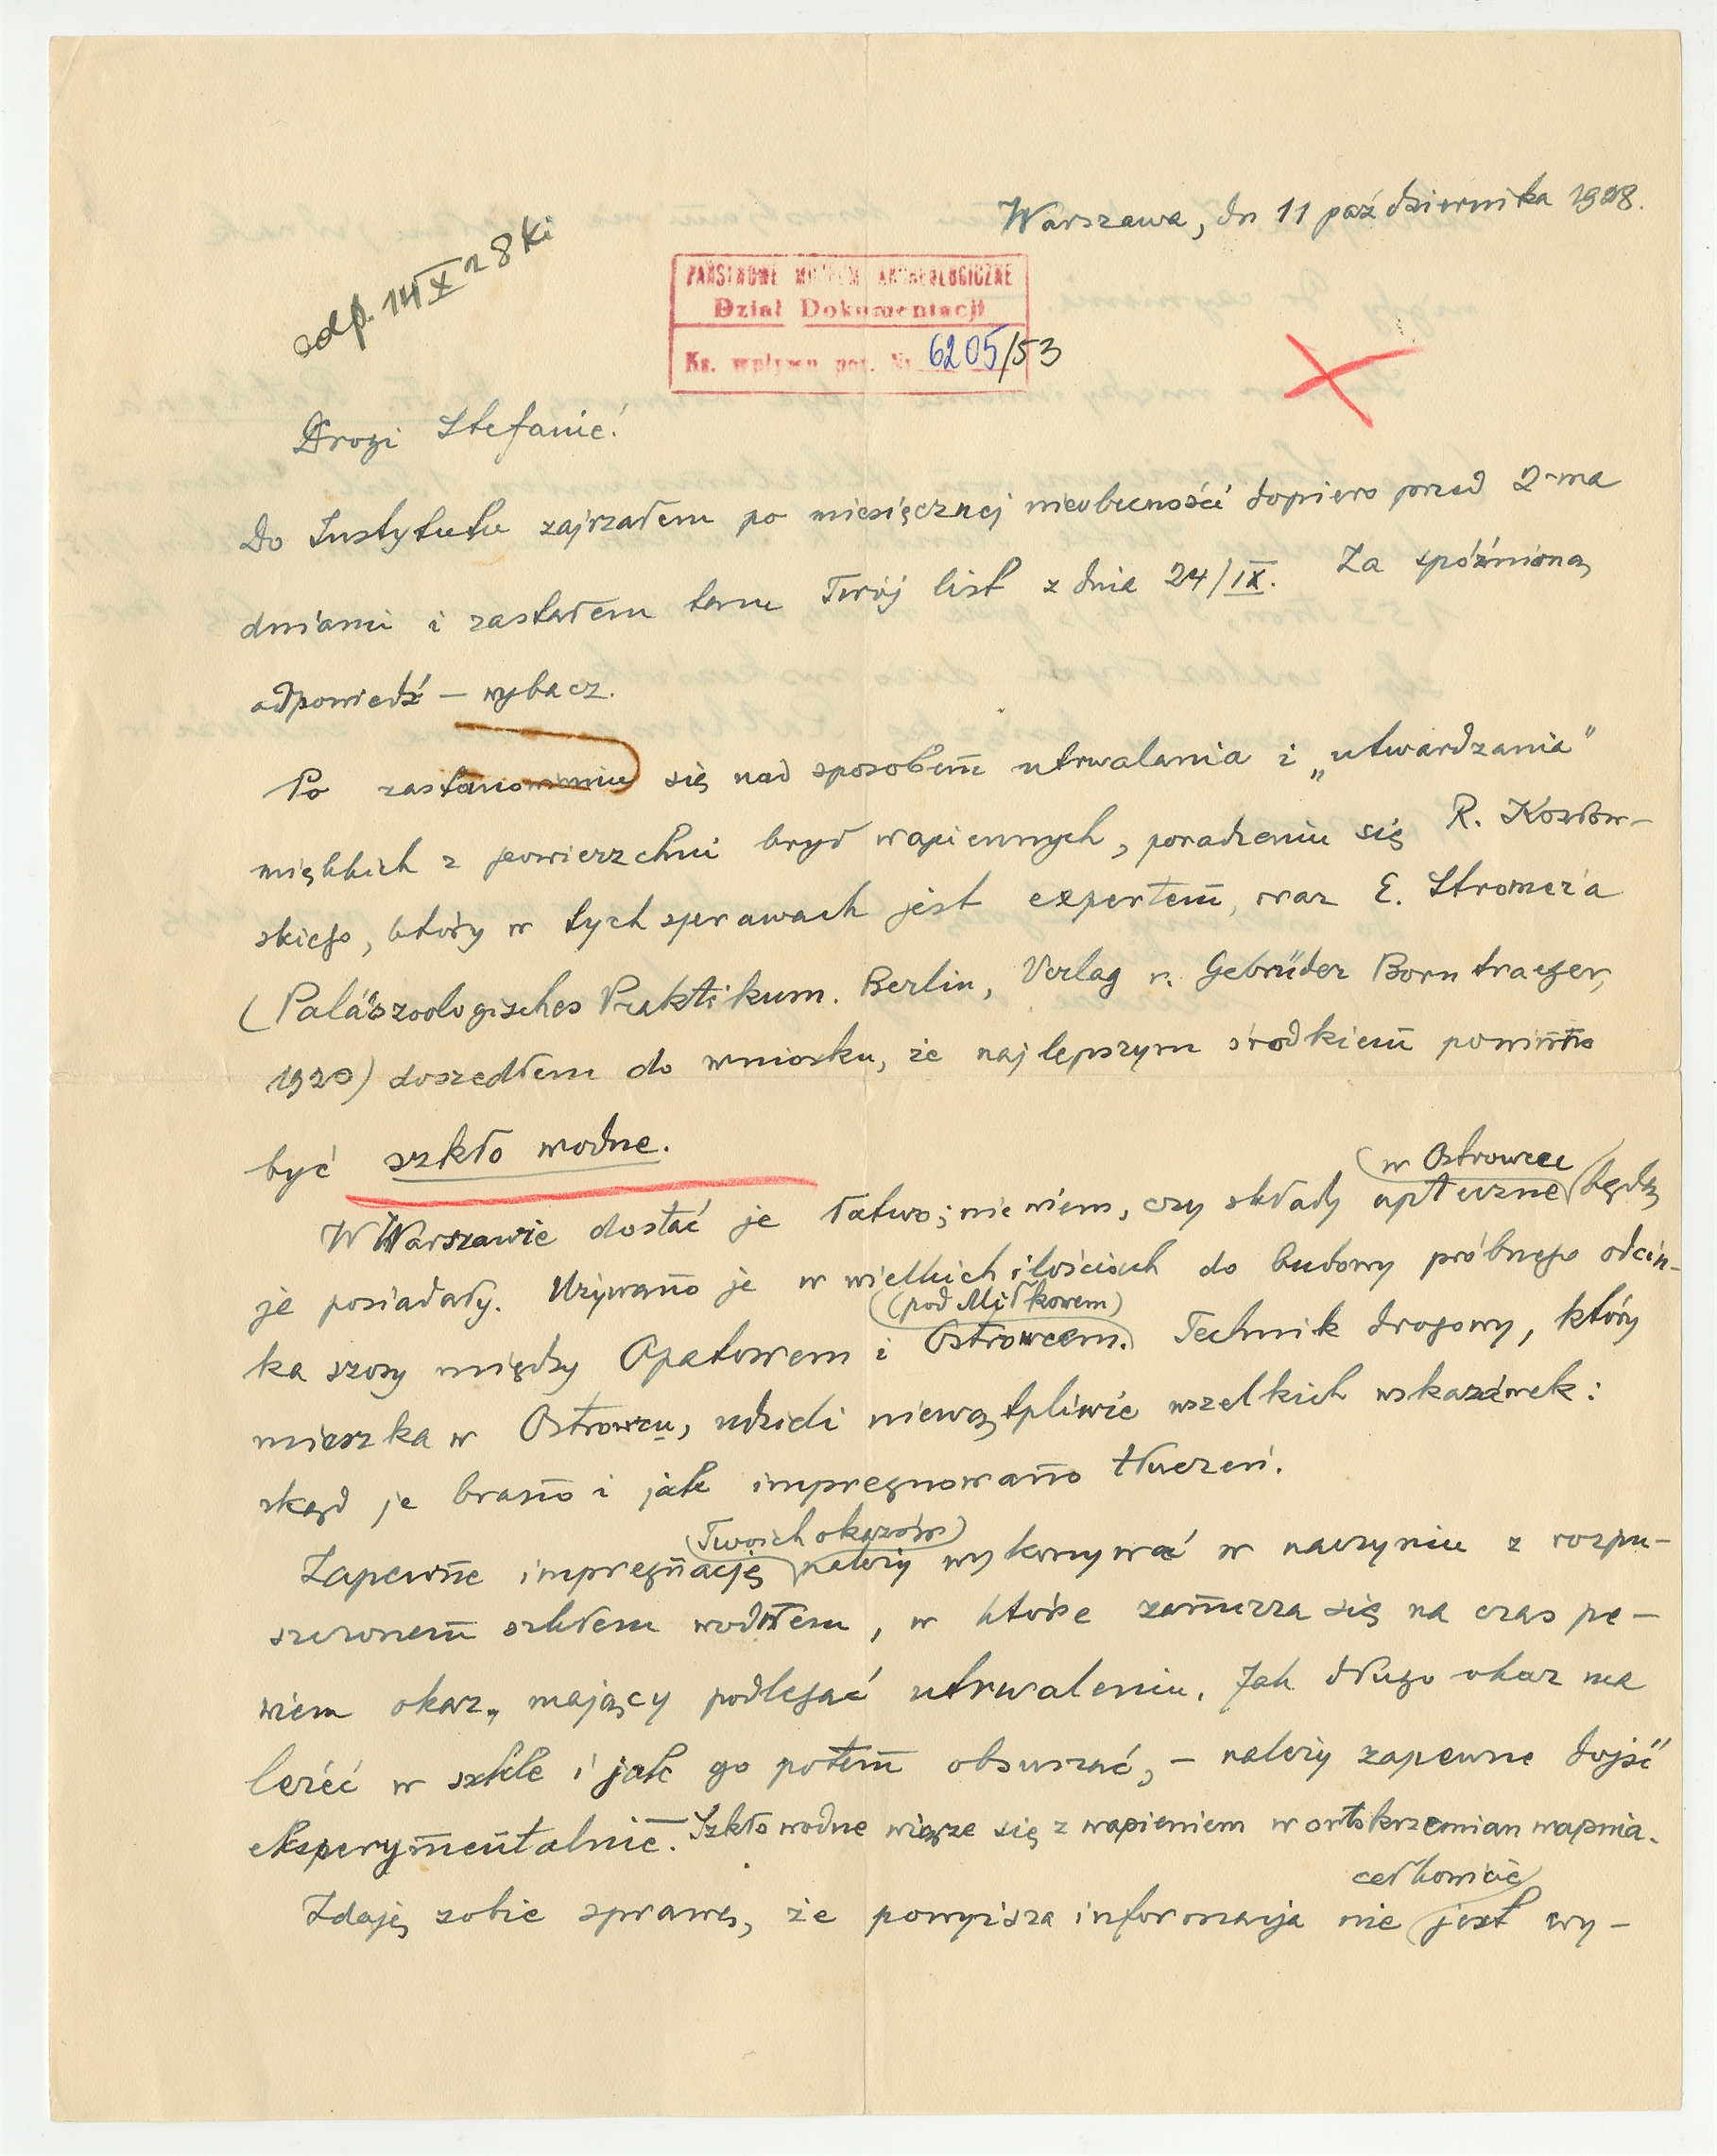 Warszawa, dn 11 października 1928.
odp. 14 X 28 Ki
PAŃSTWOWE MUZEUM ARCHEOLOGICZNE
Dział Dokumentacji
Ks. wpływu poz. Nr 6205/53
Drogi Stefanie!
Do Instytutu zajrzałem po miesięcznej nieobecności dopiero przed 2-ma
dniami i zastałem tam Twój list z dnia 24/IX. Za spóźnioną
odpowiedź – wybacz.
Po zastanowieniu się nad sposobem utrwalania i „utwardzania”
miękkich z powierzchni brył wapiennych, poradzeniu się R. Kozłow-
skiego, który w tych sprawach jest expertem, oraz E. Stromer'a
(Paläozoologisches Praktikum. Berlin, Verlag v. Gebrüder Borntraeger,
1920) doszedłem do wniosku, że najlepszym środkiem powinno
być szkło wodne.
W Warszawie dostać je łatwo; nie wiem, czy składy apteczne w Ostrowcu będą
je posiadały. Używano je w wielkich ilościach do budowy próbnego odcin-
ka szosy między Opatowem i Ostrowcem (pod Miłkowem). Technik drogowy, który
mieszka w Ostrowcu, udzieli niewątpliwie wszelkich wskazówek:
skąd je brano i jak impregnowano tłuczeń.
Zapewne impregnację Twoich okazów należy wykonywać w naczyniu z rozpu-
szczonem szkłem wodnem, w które zanurza się na czas pe-
wien okaz, mający podlegać utrwaleniu. Jak długo okaz ma
leżeć w szkle i jak go potem obsuszać, – należy zapewne dojść
eksperymentalnie. Szkło wodne wiąże się z wapieniem w ortokrzemian wapnia.
Zdaję sobie sprawę, że powyższa informacja nie jest całkowicie wy-